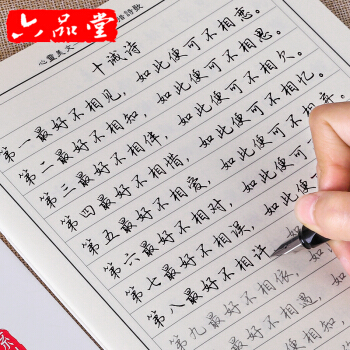 六品堂
心靈美文
詩歌
十诫诗
第一最好不相见，如此便可不相恋。
第二最好不相知，如此便可不相思。
第三最好不相伴，如此便可不相欠。
第四最好不相惜，如此便可不相忆。
第五最好不相爱，如此便可不相弃。
第六最好不相对，如此便可
第七最好不相误，如此便
第八最好不相许
第九最好不相依，如
最好不相遇，如
便相知，